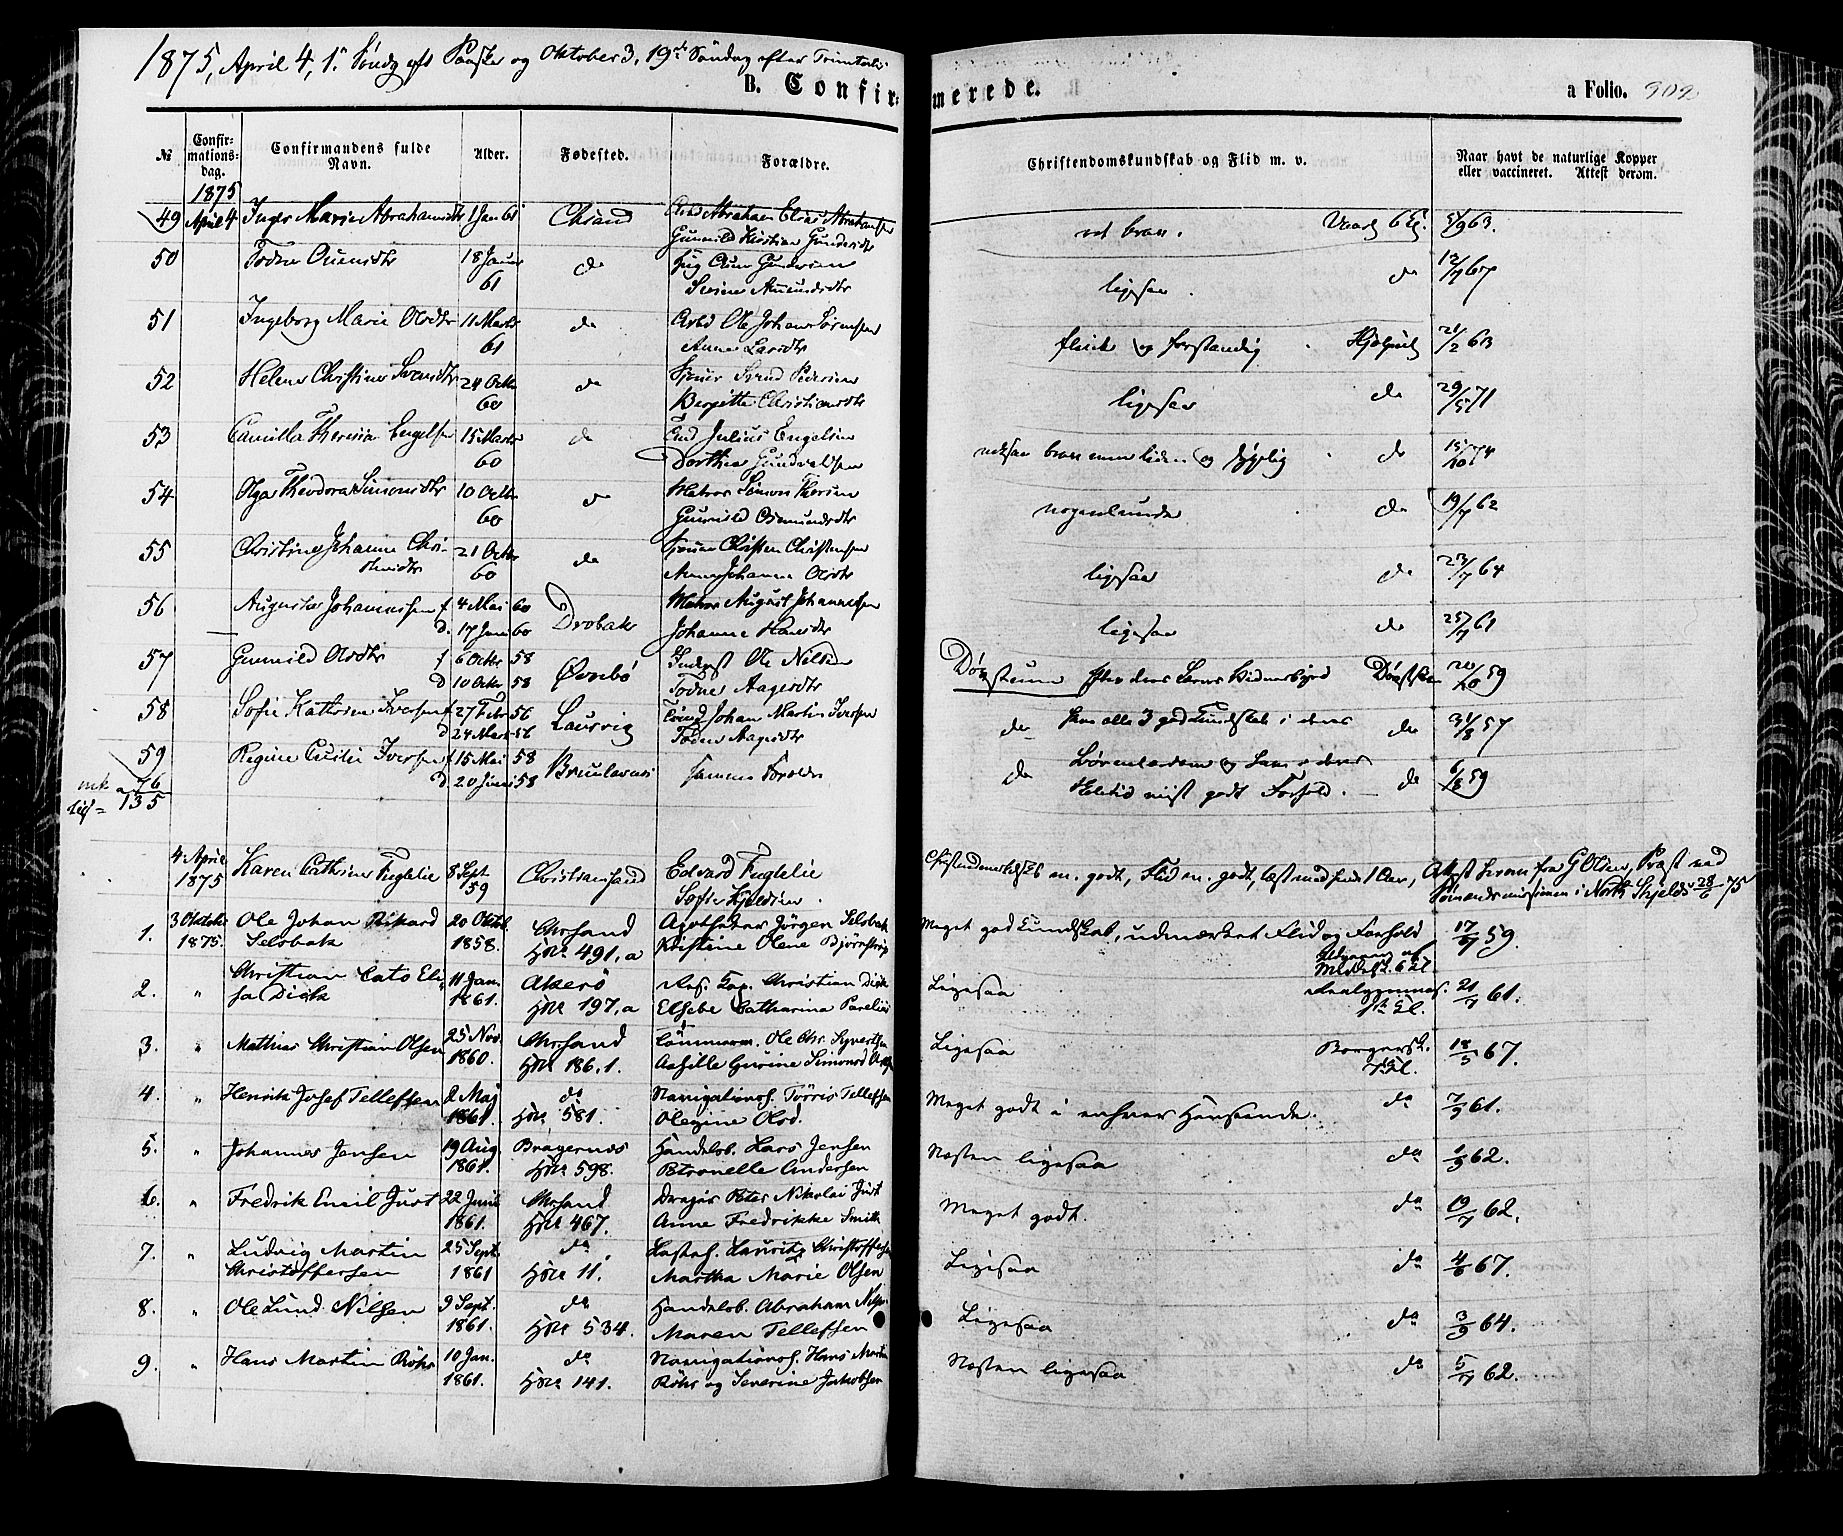 1875, April 4, 1. Søndg eft Paaske og Oktober 3, 19de Søndag efter Trinitatis
B. Confirmerede.
a Folio. 909
№
Confirmationsdag.
Confirmandens fulde Navn.
Alder.
Fødested.
Forældre.
Christendomskundskab og Flid m. v.
Naar havt de naturlige Kopper eller vaccineret. Attest derom.
1875
49 April 4 Inger Marie Abrahamsdtr 1 Jan 61 Chsand Arbd Abraham Elias Abrahamsen
Gunnild Kirstine Gundersdtr
vet brav. 63.
50 Todne 18 Januar 61 do Gundersen
ligesaa. do 67
51 Ingeborg Marie Olsdtr 11 Marts 61 do Arbd Ole Johan Sørensen
Anne Larsdtr
flink og forstandig Hjelpesk 21/2 63
52 Helene Christine Svendsdtr 24 Octbr 60 do Svend Pedersen
Bergitte Christiansdtr
ligesaa do 29/5 71
53 Camilla Theresia Engelsen 15 Marts 60 do Julius Engelsen
Dorthea Gundvaldsen
og sygelig do 15/10 74
54 Olga Theodora Simonsdtr 10 Octbr 60 do Matros Simon
Gunnild Osmundsdtr
nogenlunde do 19/7 62
55 Christine Johanne Christensdtr 21 Octbr 60 do Christen Christensen
Anne Johanne Olsdtr
ligesaa do 23/7 64
56 Augusta Johannesen f 4 Mai 60
d. 17 Juni 60 Drøbak Matros August Johannesen
Johanne Hansdtr
ligesaa do 61
57 Gunnild Olsdtr f 6 Octbr 58
d 10 Octbr 58 Øvrebø Ole Nilsen
Todne Aagesdtr
Døvstum efter deres Lærers Vidnesbyrd Døvstsk 20/10 59
58 Sofie Kathrine Iversen f 27 Febr 56
d 24 Marts 56 Laurvig Johan Martin Iversen
Todne Aagesdtr
do have alle 3 god Kundskab i deres do 57
59 Regine Cecilie Iversen f 15 Mai 58
d 20 Juni 58 Brunlanæs samme Forældre
do Børnelærdom og have i deres
Skoletid viist godt Forhold. do 6/8 59
76
135
4 April 1875 Karen Cathrine Fuglelie 8 Sept 59 Christiansand Edvard Fuglelie
Sofie Kjeldsen
m. godt, Flid m. godt, Attest herom fra G Olsen, Præst ved
Sømandsmissionen i North Shjelds 75
3 Oktober 1875. 1. Ole Johan Rikard Selsbak 20 Oktob. 1858. Chrsand
H№ 491,a Apotheker Jörgen Selsbak
Kristine Olene
Meget god Kundskab, udmærket Flid og Forhold 59.
2. " Christian Cato Elisa Dick 11 Jan. 1861. Akerö
H№ 197,a Christian Dick
Elsebe Catharina Parelius
Ligesaa Realgymnas. 21/7 61.
3. " Mathias Christian Olsen 25 Nov. 1860. Chrsand
H№ 186,1. Tömmerm. Ole Chr. Syvertsen
Gurine
Ligesaa Borgersk. 67.
4. " Henrik Josef Tellefsen 2 Maj 1861. do
H№ 581. Navigationsl. Törris Tellefsen
Olegine Olsd.
Meget godt i enhver Henseende. do 61.
5. " Johannes Jensen 19 Aug. 1861. Bragernæs
H№ 598. Handelsb. Lars Jensen
Petronelle Andersen
Næsten ligesaa do 62.
6. " Fredrik Emil Just 22 Juni 1861. Chrsand
H№ 467. Peter Nikolai Just
Anne Fredrikke Smith
Meget godt. do 62.
7. " Ludvig Martin Christoffersen 25 Sept. 1861 do
H№ 11. Lauritz Christoffersen
Martha Marie Olsen
Ligesaa do 67.
8. " Ole Lund Nilsen 9 Sept. 1861. do
H№ 534. Handelsb. Abraham Nilsen
Maren Tellefsen
Ligesaa do 3/9 64.
9. " Hans Martin Röhr 10 Jan. 1861. do
H№ 141. Navigationsl. Hans Martin
Röhr og Severine Jakobsen
Næsten ligesaa do 62.